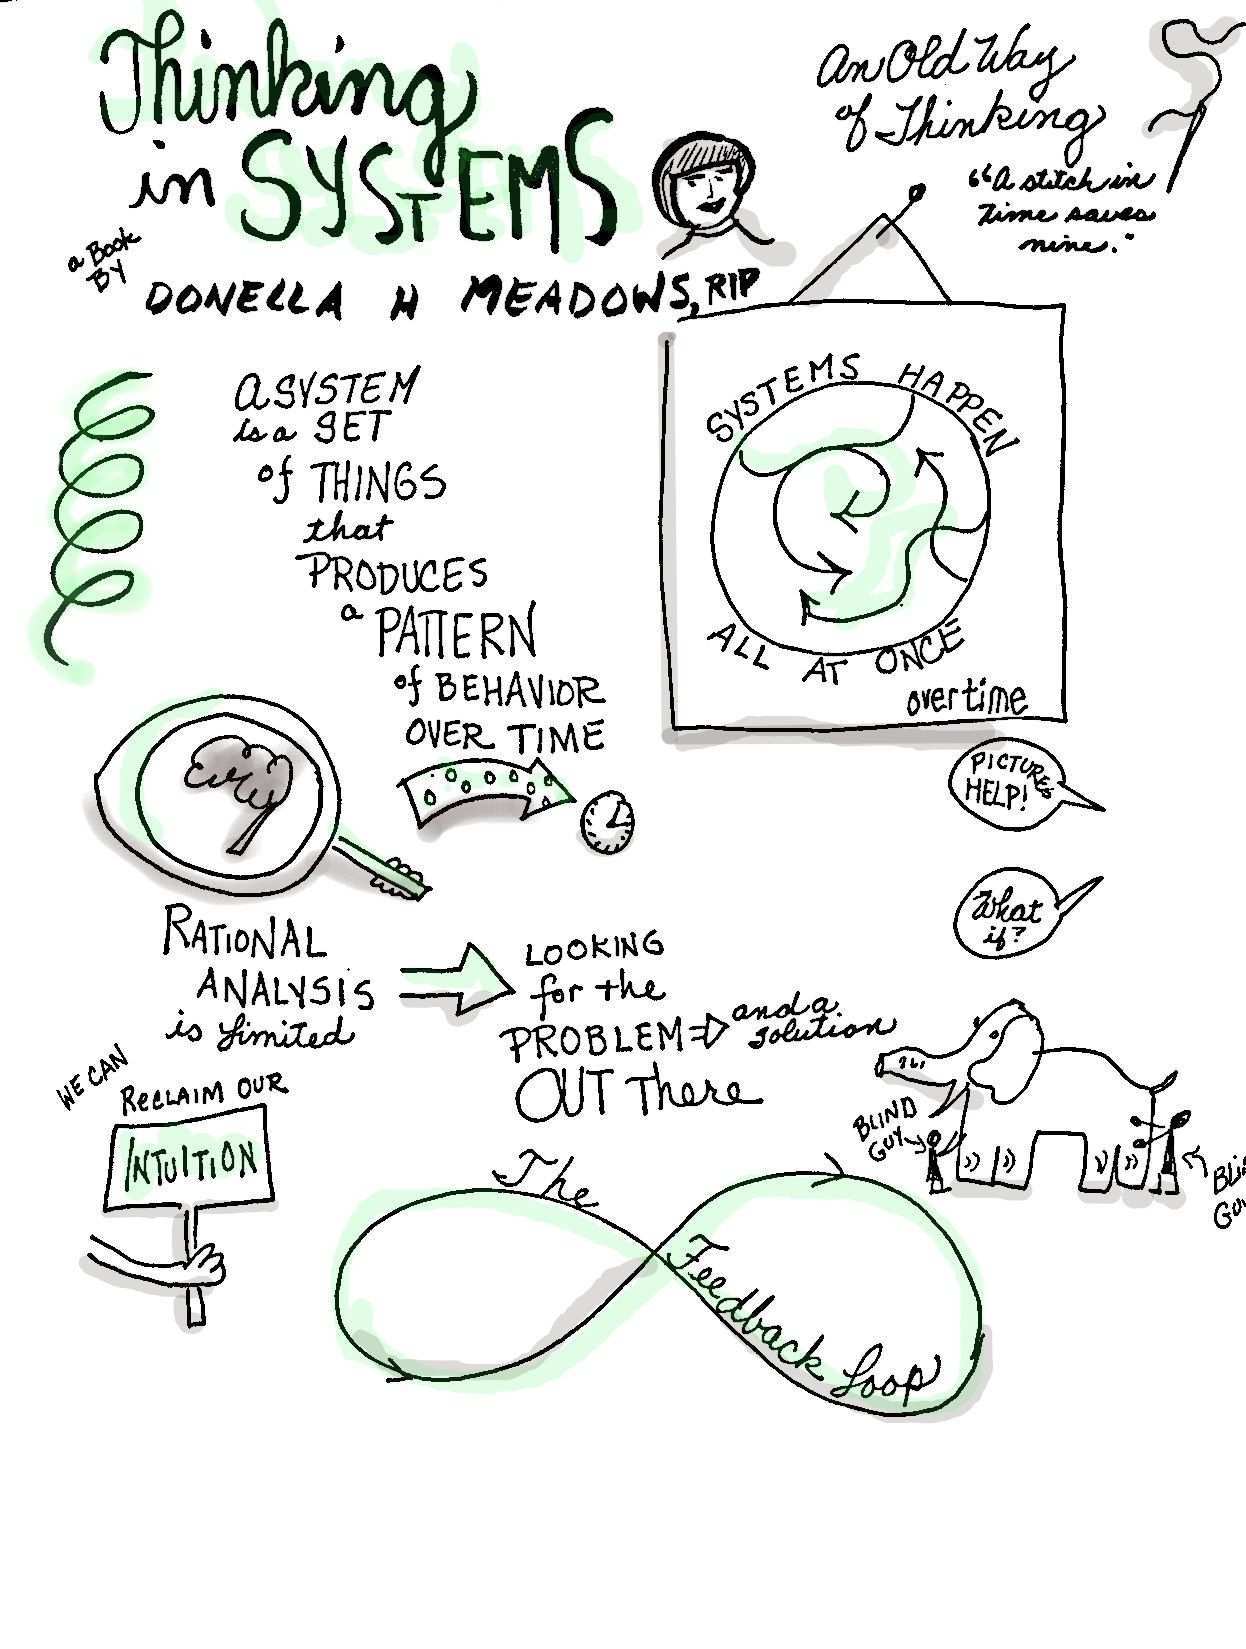 Thinking
in SYSTEMS
a Book
BY
DONELLA H MEADOWS, RIP
An Old Way
of Thinking
"A stitch in
Time saves
nine."
A SYSTEM
is a SET
of THINGS
that
PRODUCES
a PATTERN
of BEHAVIOR
OVER TIME
SYSTEMS HAPPEN
ALL AT ONCE
over time
PICTURES
HELP!
What
if?
RATIONAL
ANALYSIS
is limited
LOOKING
for the
PROBLEM
and a
solution
OUT There
WE CAN
RECLAIM OUR
INTUITION
BLIND
GUY
The
Feedback Loop